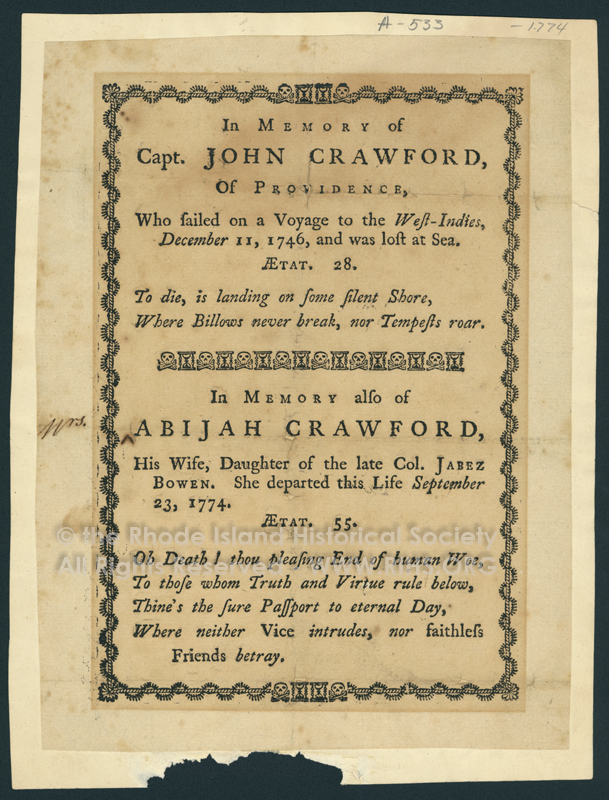 A-533 -1774
In MEMORY of
Capt. JOHN CRAWFORD,
Of PROVIDENCE,
Who ſailed on a Voyage to the Weſt-Indies,
December 11, 1746, and was loſt at Sea.
ÆTAT. 28.
To die, is landing on ſome ſilent Shore,
Where Billows never break, nor Tempeſts roar.
In MEMORY alſo of
Mrs.
ABIJAH CRAWFORD,
His Wife, Daughter of the late Col. JABEZ
BOWEN. She departed this Life September
23, 1774.
ÆTAT. 55.
© the Rhode Island Historical Society
Oh Death! thou pleaſing End of human Woe,
To thoſe whom Truth and Virtue rule below,
Thine's the ſure Paſſport to eternal Day,
Where neither Vice intrudes, nor faithleſs
Friends betray.